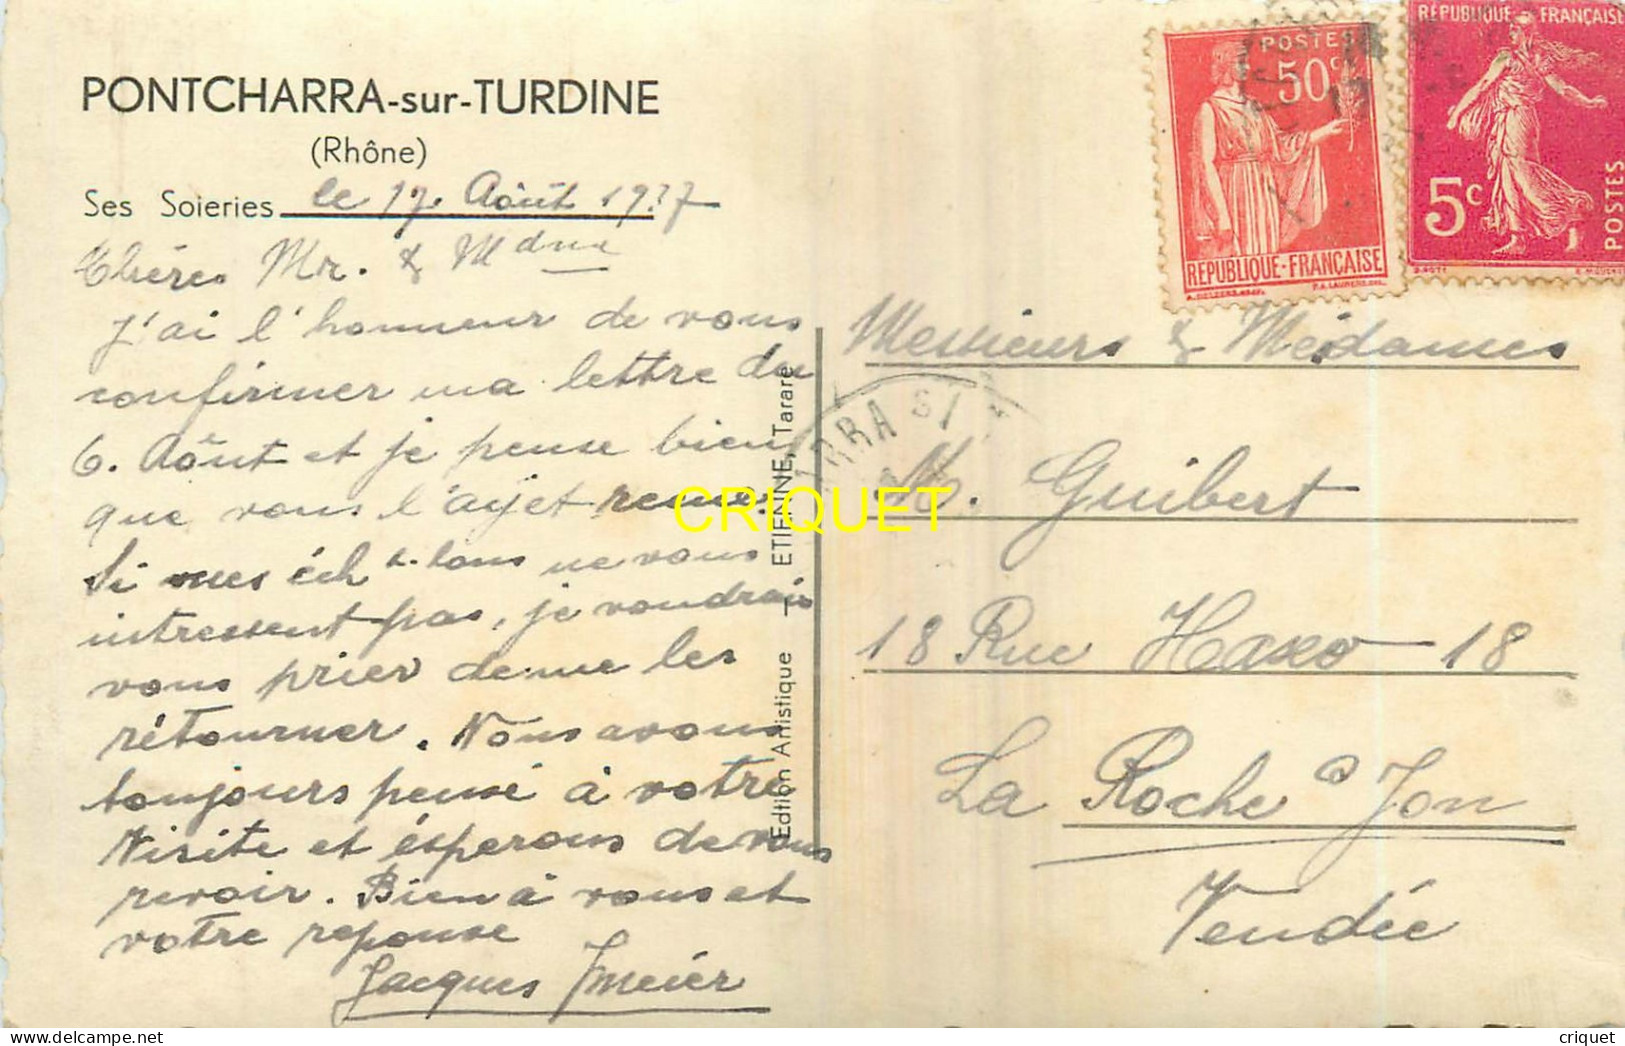 PONTCHARRA-sur-TURDINE
(Rhône)
Ses Soieries le 17. Août 1937
Chéres Mr. & Mdme
J'ai l'honneur de vous
confirmer ma lettre du
6. Aôut et je pense bien
que vous l'ayet
Si mes éch lons ne vous
intressent pas, je voudrais
vous prier de me les
rétourner. Nous avons
toujours pensé à votre
Visite et ésperons de vous
revoir. Bien à vous et
votre reponse
Jacques
Edtion Artistique — ETIENNE, Tarare
POSTES
50c
REPUBLIQUE-FRANÇAISE
REPUBLIQUE FRANÇAISE
5c
POSTES
ARRA S
Messieurs & Médames
M. Guibert
18 Rue Haxo - 18
La Roche s Jon
Vendée
CRIQUET
criquet